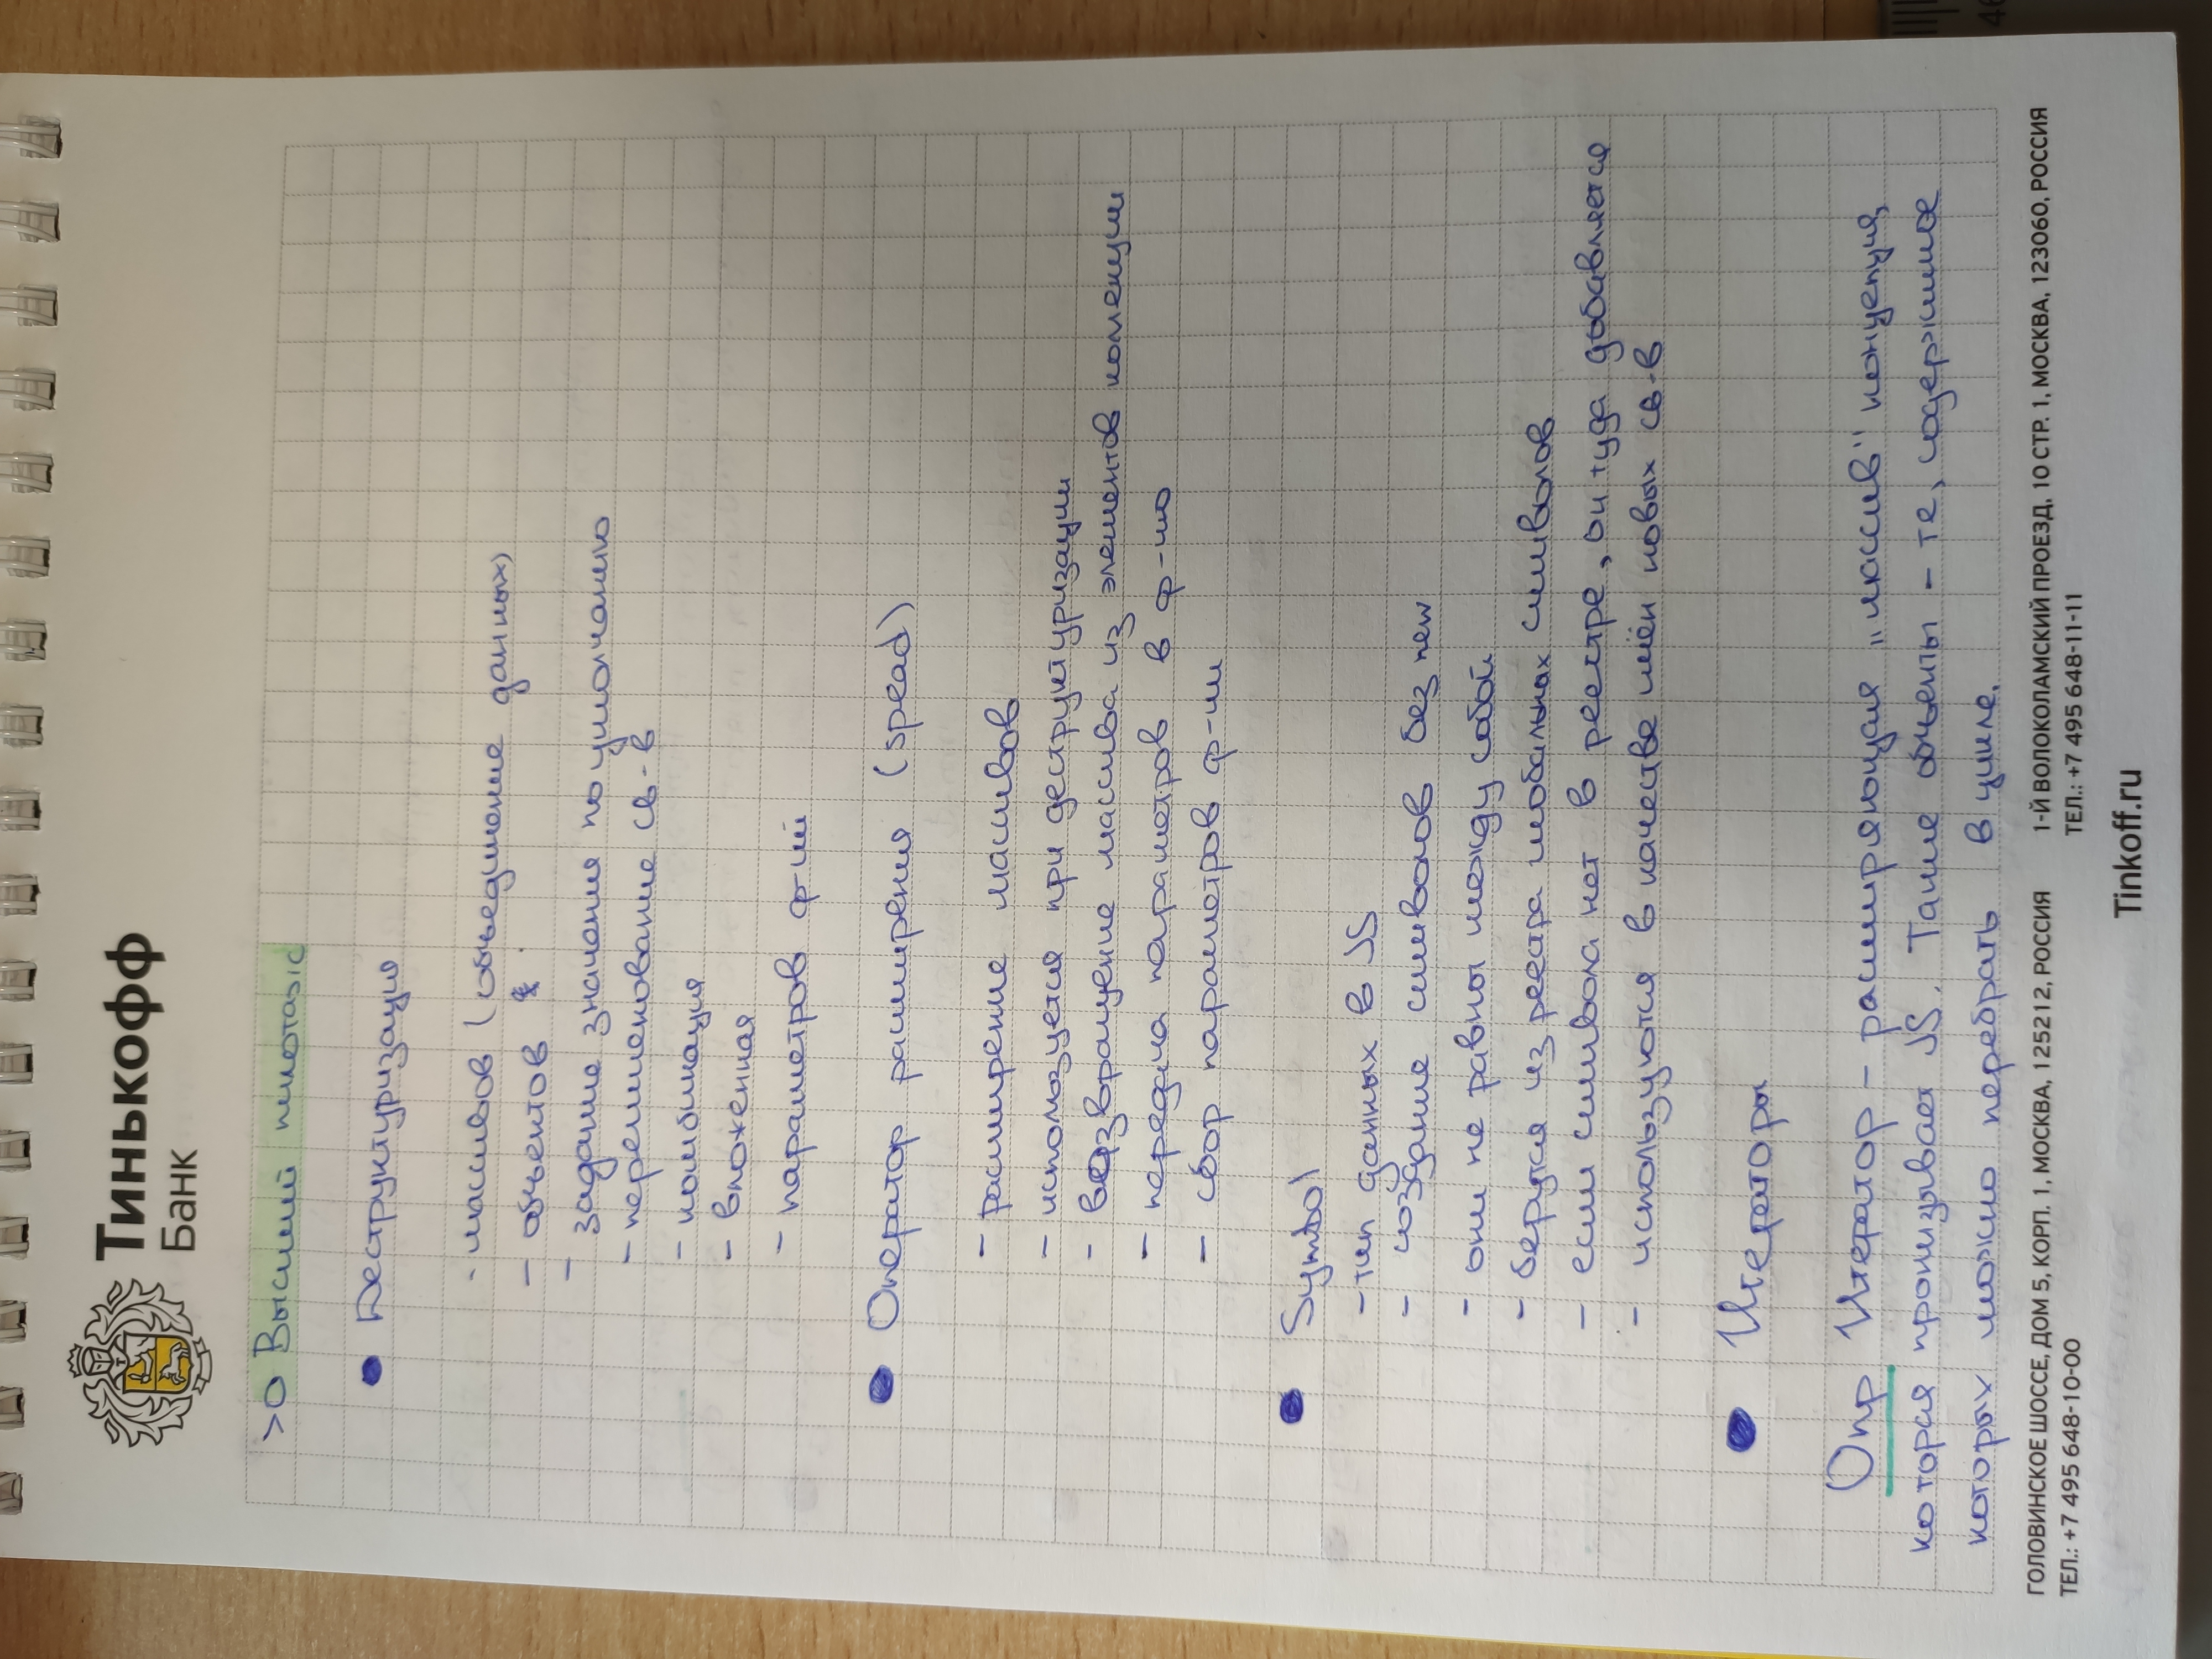 Тинькофф
Банк
>O Высший пилотаж
• Деструктуризация
- массивов (объединение данных)
- объектов
- задание значения по умолчанию
- переименование св-в
- комбинация
- вложенная
- параметров ф-ий
• Оператор расширения (spead)
- расширение массивов
- используется при деструктуризации
- возвращение массива из элементов коллекции
- передача параметров в ф-ию
- сбор параметров ф-ии
• Symbol
- тип данных в JS
- создание символов без new
- они не равны между собой
- берутся из реестра глобальных символов
- если символа нет в реестре, он туда добавляется
- используются в качестве имён новых св-в
• Итераторы
Опр Итератор - расширяющая „массив" концепция,
которая пронизывает JS. Такие объекты - те, содержимое
которых можно перебрать в цикле.
ГОЛОВИНСКОЕ ШОССЕ, ДОМ 5, КОРП. 1, МОСКВА, 125212, РОССИЯ
ТЕЛ.: +7 495 648-10-00
1-Й ВОЛОКОЛАМСКИЙ ПРОЕЗД, 10 СТР. 1, МОСКВА, 123060, РОССИЯ
ТЕЛ.: +7 495 648-11-11
Tinkoff.ru